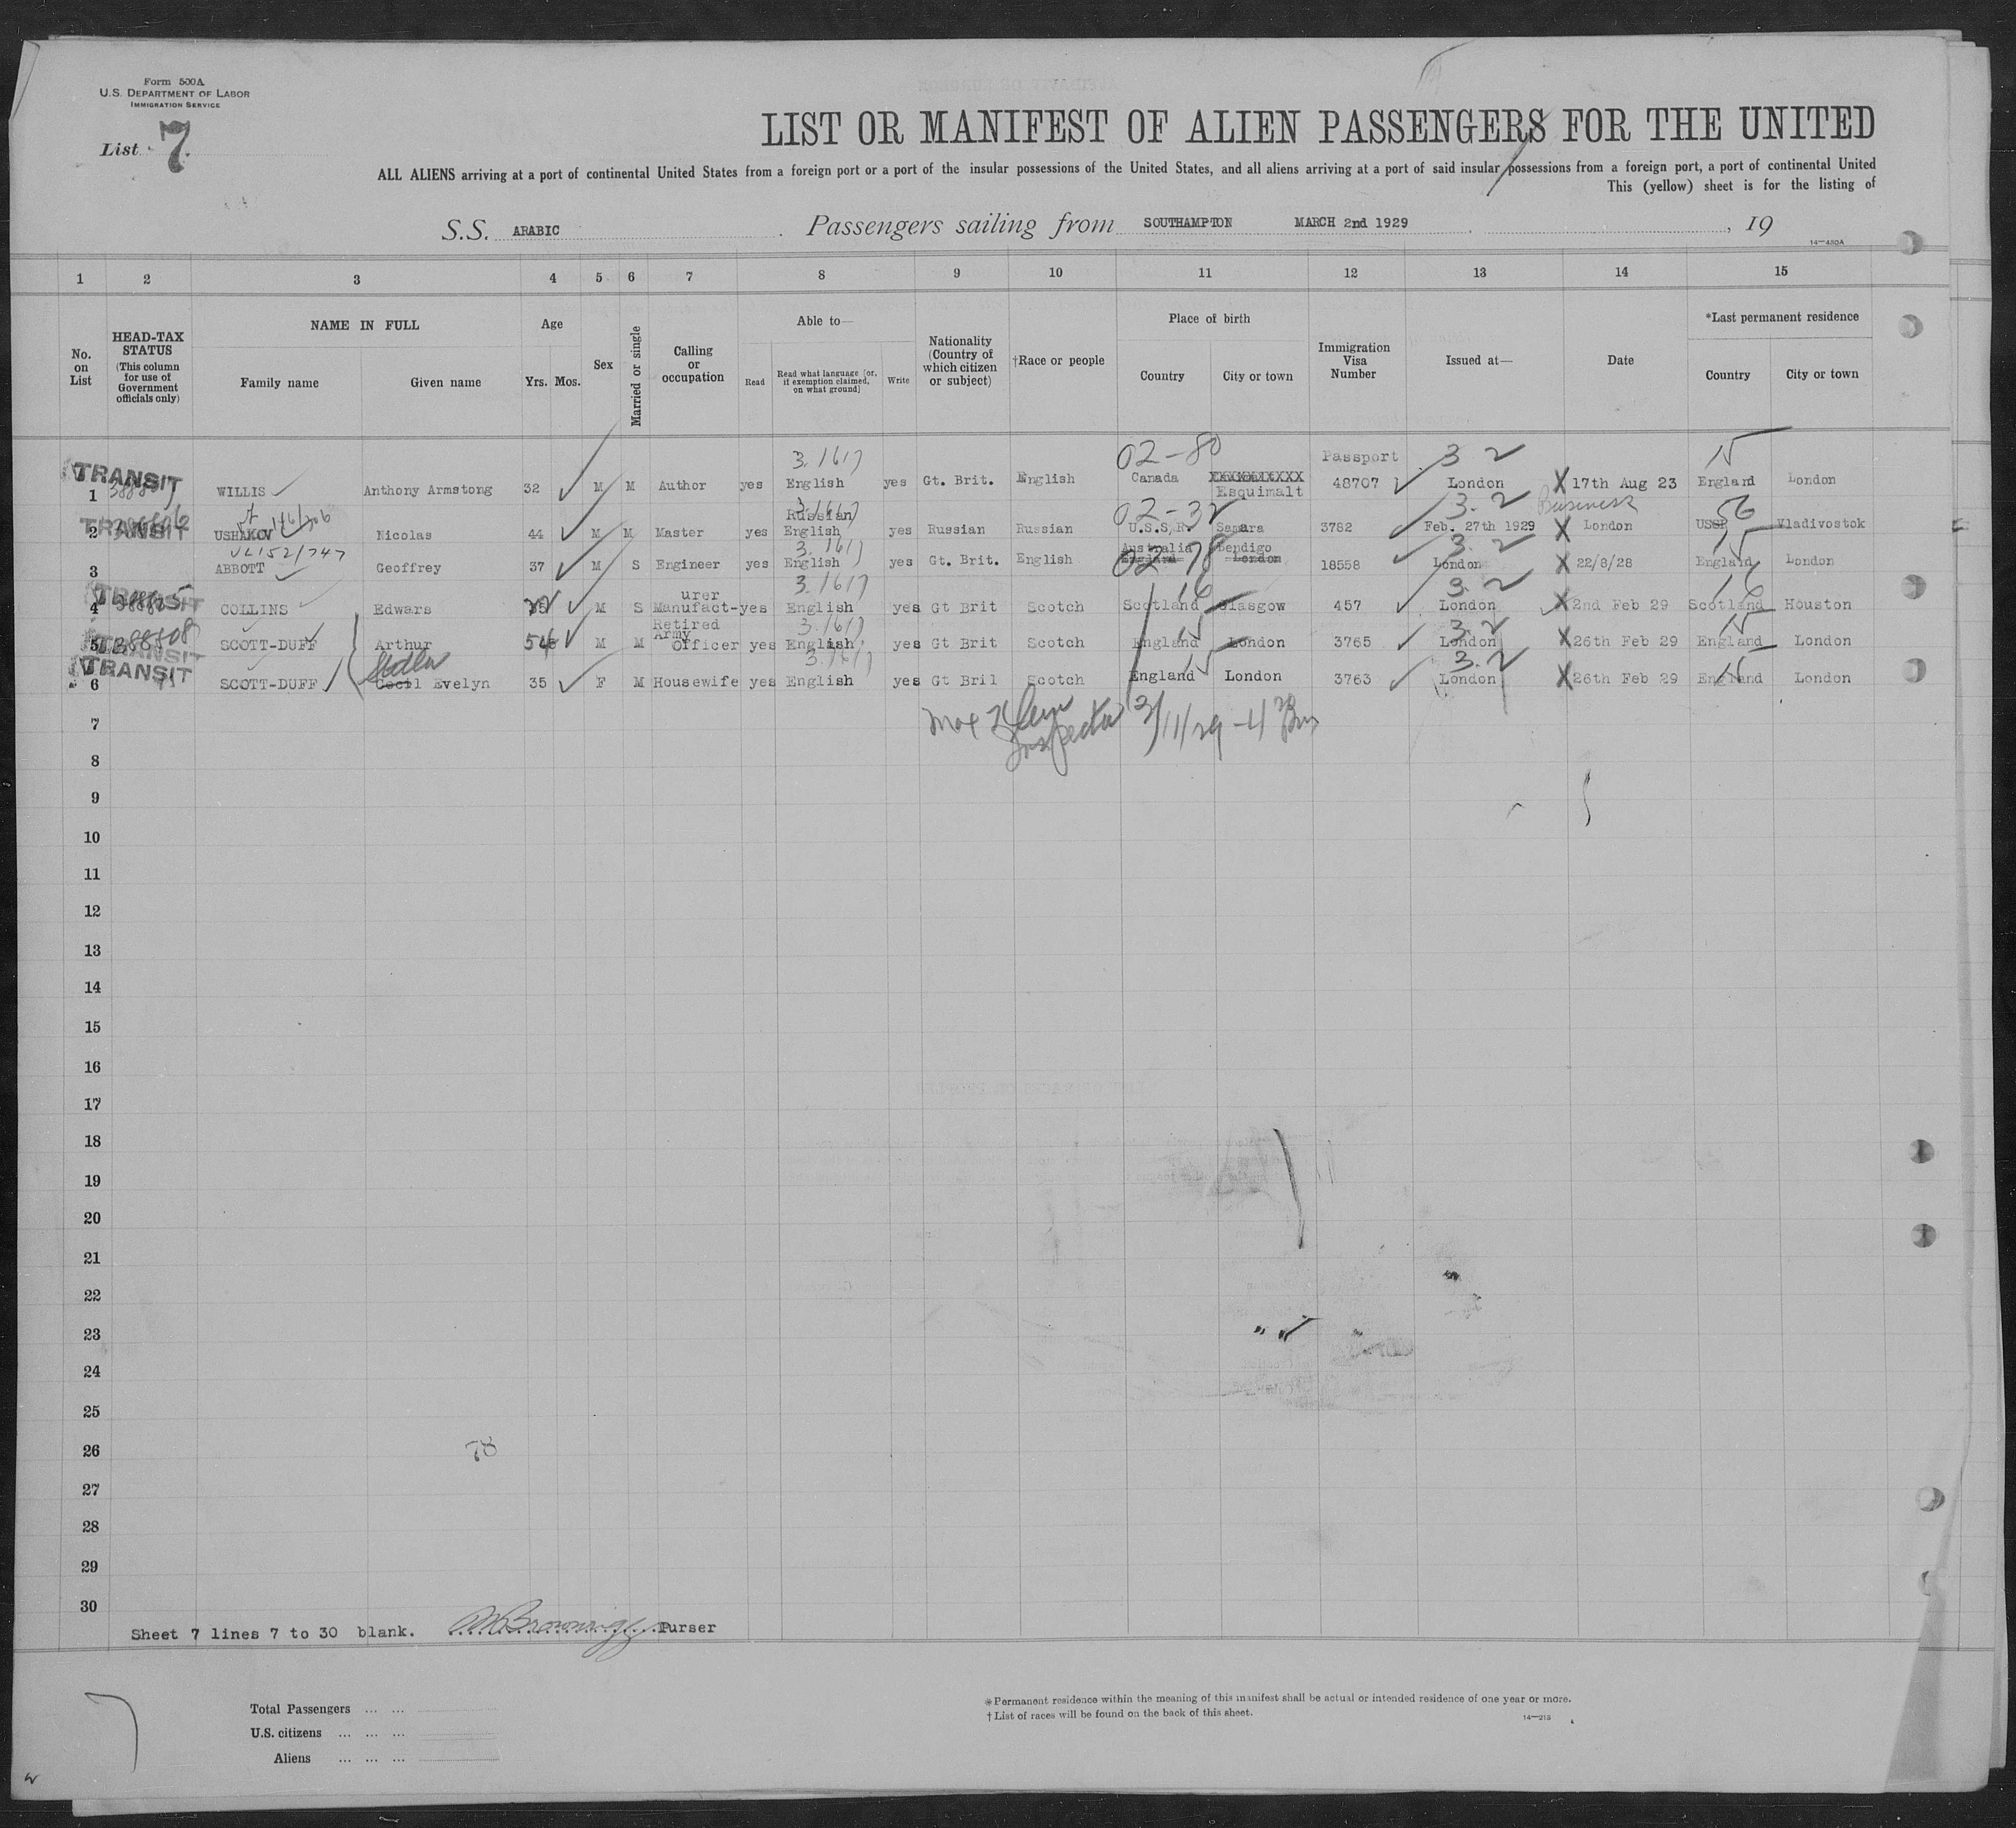 Form 500A
U.S. DEPARTMENT OF LABOR
IMMIGRATION SERVICE
List 7
LIST OR MANIFEST OF ALIEN PASSENGERS FOR THE UNITED
ALL ALIENS arriving at a port of continental United States from a foreign port or a port of the insular possessions of the United States, and all aliens arriving at a port of said insular possessions from a foreign port, a port of continental United
This (yellow) sheet is for the listing of
S.S. ARABIC Passengers sailing from SOUTHAMPTON MARCH 2nd 1929, 19
14—480A
1 2 3 4 5 6 7 8 9 10 11 12 13 14 15
No. on List
HEAD-TAX STATUS (This column for use of Government officials only)
NAME IN FULL
Family name Given name
Age
Yrs. Mos.
Sex
Married or single
Calling or occupation
Able to—
Read Read what language [or, if exemption claimed, on what ground] Write
Nationality (Country of which citizen or subject)
†Race or people
Place of birth
Country City or town
Immigration Visa Number
Issued at—
Date
*Last permanent residence
Country City or town
3.1617 02-80 Passport 3 2 15
TRANSIT
1 WILLIS Anthony Armstong 32 M M Author yes English yes Gt. Brit. English Canada Esquimalt 48707 London X 17th Aug 23 England London
3.1617 02-32 3.2 Business 56
TRANSIT
2 USHAKOV Nicolas 44 M M Master yes Russian English yes Russian Russian U.S.S.R. Samara 3782 Feb. 27th 1929 X London USSR Vladivostok
3.1617 02-78 3. 2 15
3 ABBOTT Geoffrey 37 M S Engineer yes English yes Gt. Brit. English Australia England Bendigo London 18558 London X 22/8/28 England London
3.1617 16 3.2 16
TRANSIT
4 COLLINS Edwars M S Manufact-urer yes English yes Gt Brit Scotch Scotland Glasgow 457 London X 2nd Feb 29 Scotland Houston
3.1617 15 3.2 15
TRANSIT
5 SCOTT-DUFF Arthur 54 M M Retired Army Officer yes English yes Gt Brit Scotch England London 3765 London X 26th Feb 29 England London
3.1617 15 3.2 15
TRANSIT
6 SCOTT-DUFF Cecil Evelyn 35 F M Housewife yes English yes Gt Bril Scotch England London 3763 London X 26th Feb 29 England London
Inspector 3/11/29
7
8
9
10
11
12
13
14
15
16
17
18
19
20
21
22
23
24
25
26
78
27
28
29
30
Sheet 7 lines 7 to 30 blank. Purser
Total Passengers ... ...
U.S. citizens ... ... ...
Aliens ... ... ...
*Permanent residence within the meaning of this manifest shall be actual or intended residence of one year or more.
†List of races will be found on the back of this sheet.
14—213